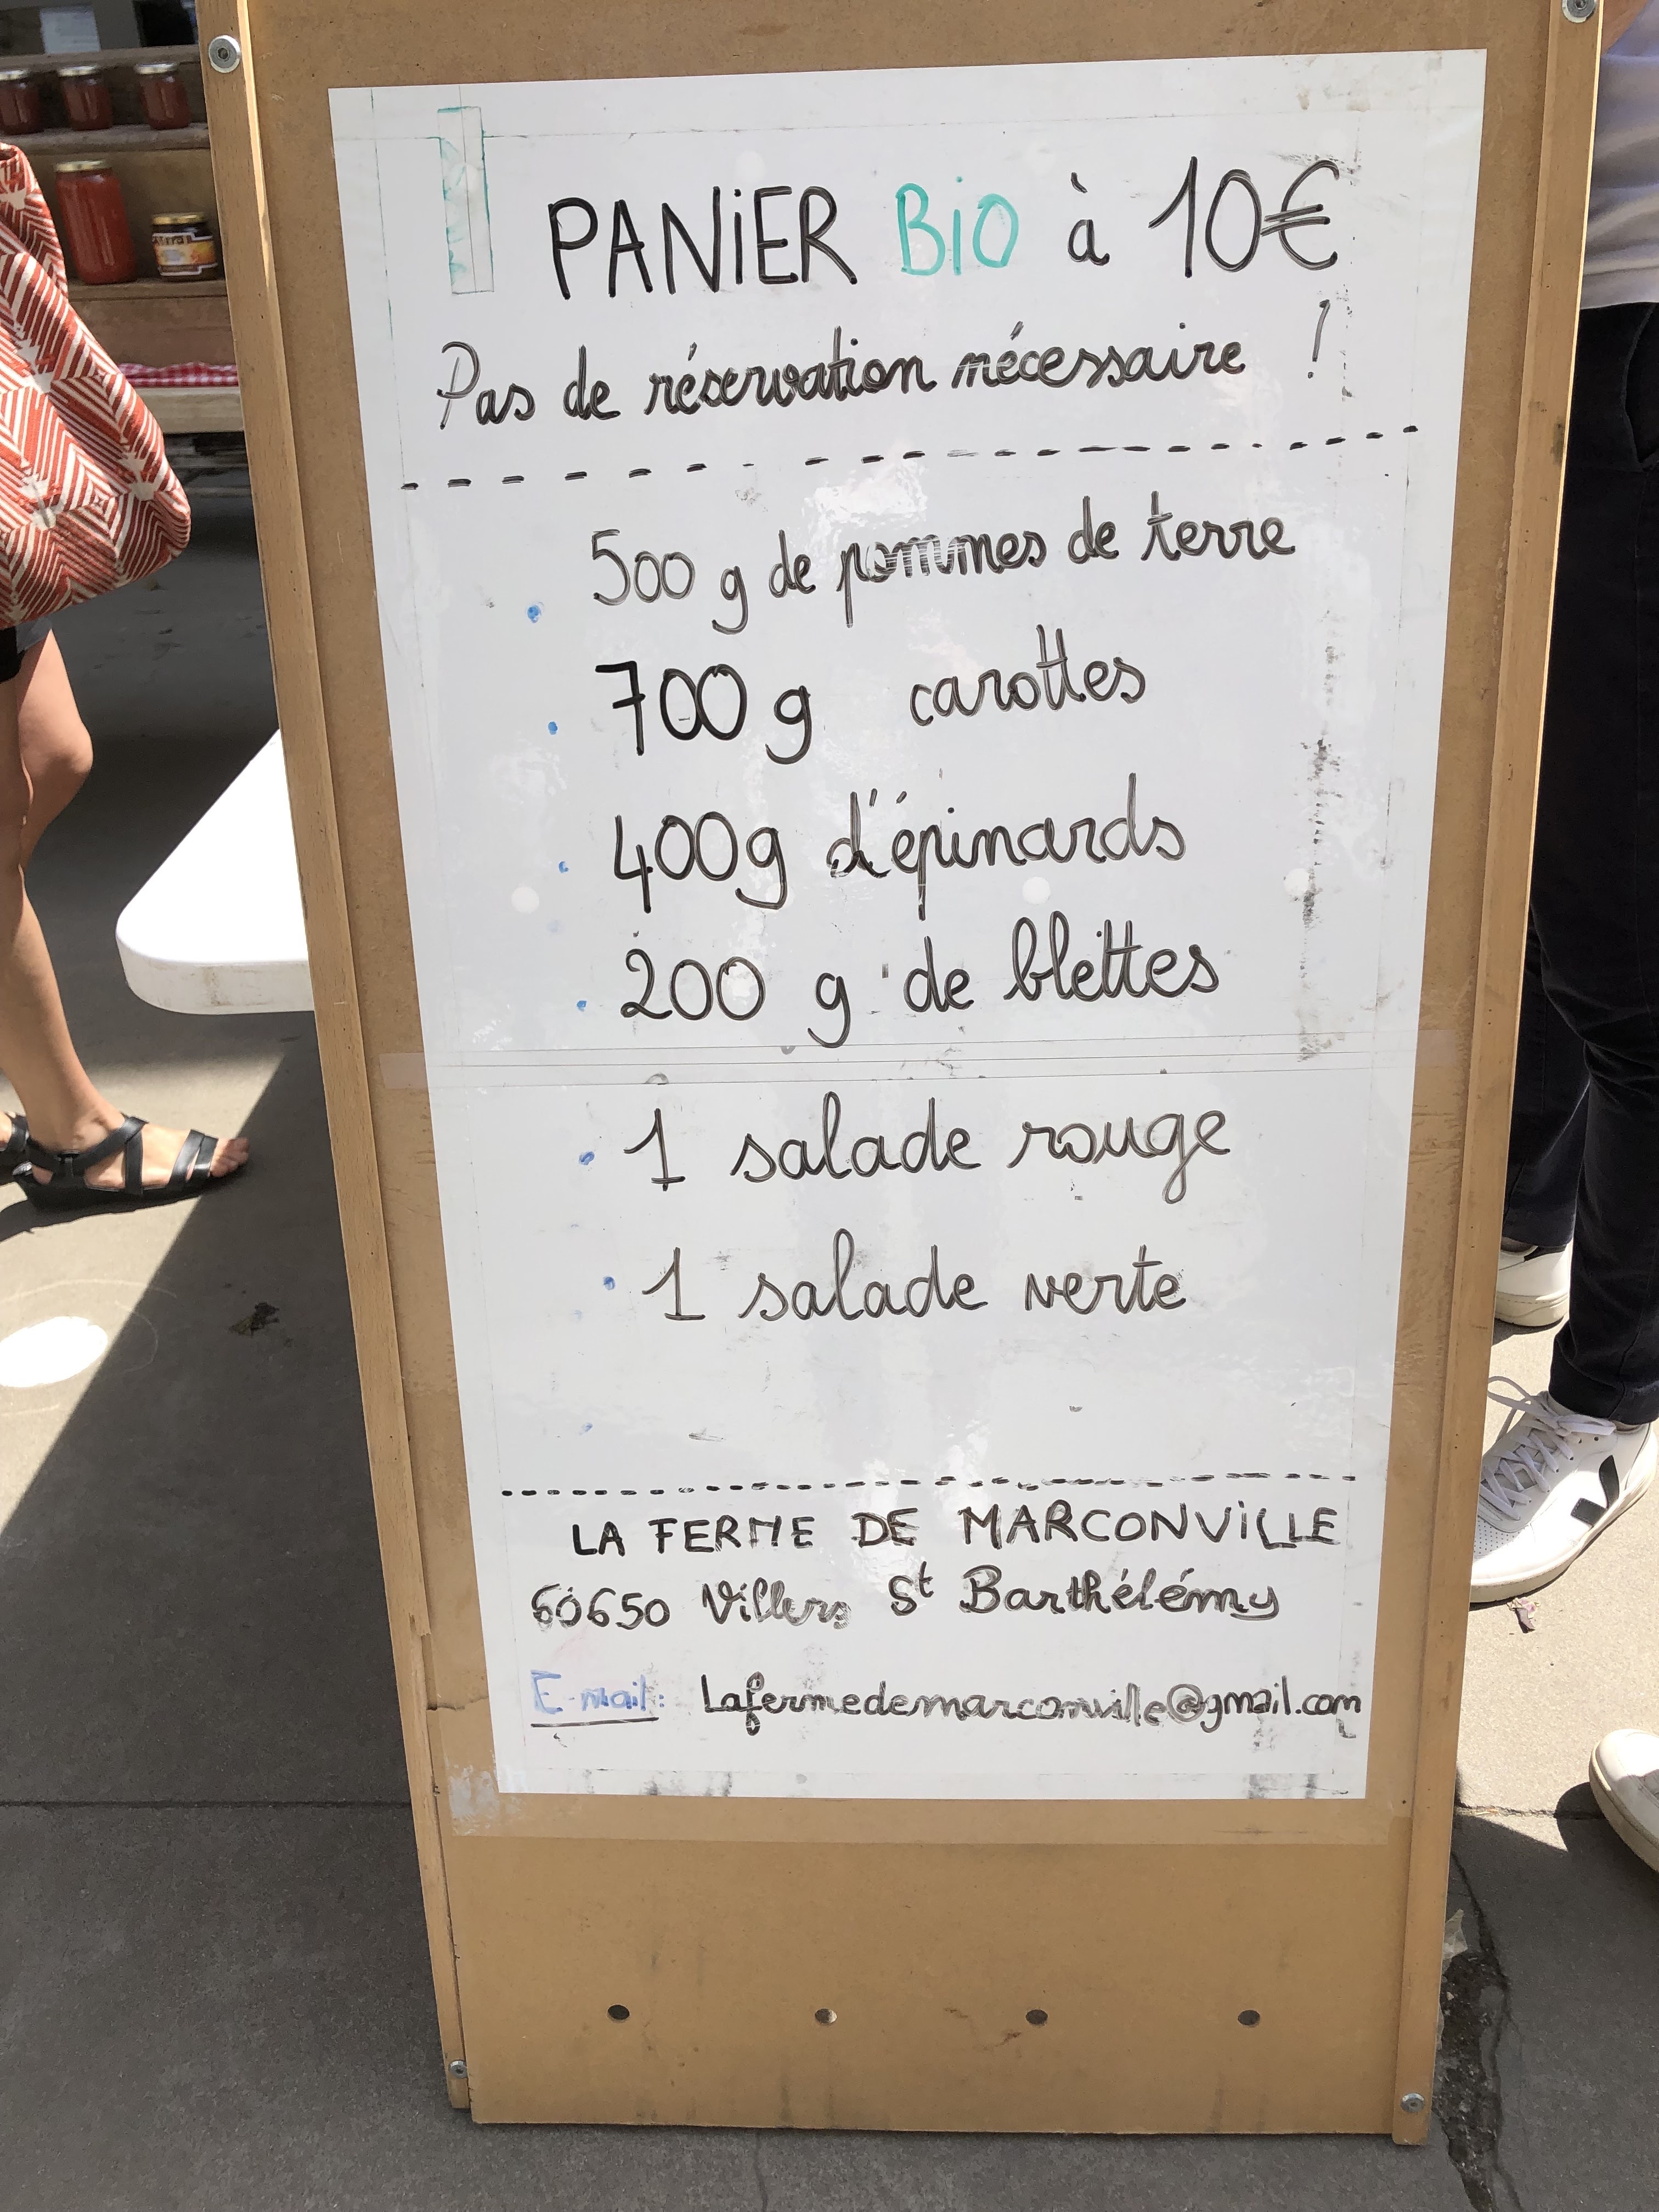 PANiER BiO à 10€
Pas de réservation nécessaire !
500 g de pommes de terre
700 g carottes
400g d'épinards
200 g de blettes
1 salade rouge
1 salade verte
LA FERME DE MARCONViLLE
60650 Villers St Barthélémy
E-mail: Lafermedemarconville@gmail.com